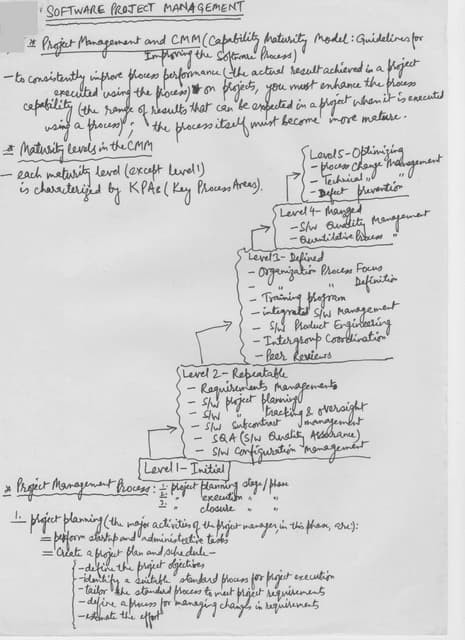 SOFTWARE PROJECT MANAGEMENT
* Project Management and CMM (Capability Maturity Model: Guidelines for
Improving the Software Process)
- to consistently improve process performance (the actual result achieved in a project
executed using the process) on projects, you must enhance the process
capability (the range of results that can be expected in a project when it is executed
using a process); the process itself must become more mature.
* Maturity levels in the CMM
- each maturity level (except level 1)
is characterized by KPAs (Key Process Areas).
Level 5 - Optimizing
- process Change Management
- Technical " "
- Defect prevention
Level 4 - Managed
- S/W Quality Management
- Quantitative Process "
Level 3 - Defined
- Organization Process Focus
- " " Definition
- Training program
- integrated S/W Management
- S/W Product Engineering
- Intergroup Coordination
- Peer Reviews
Level 2 - Repeatable
- Requirements Managements
- S/W project planning
- S/W " tracking & oversight
- S/W subcontract management
- SQA (S/W Quality Assurance)
- S/W Configuration Management
Level 1 - Initial
* Project Management Process: 1. project planning stage/phase
2. " execution "
3. " closure "
1. project planning (the major activities of the project manager, in this phase, are):
= perform startup and administrative tasks
= Create a project plan and schedule -
- define the project objectives
- identify a suitable standard process for project execution
- tailor the standard process to meet project requirements
- define a process for managing changes in requirements
- estimate the effort